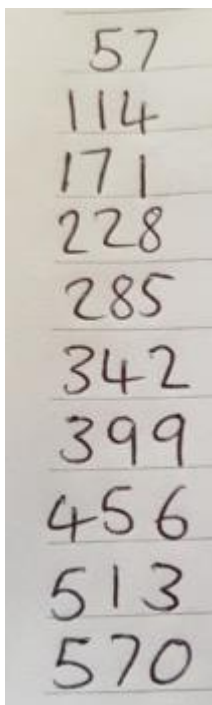 57
114
171
228
285
342
399
456
513
570